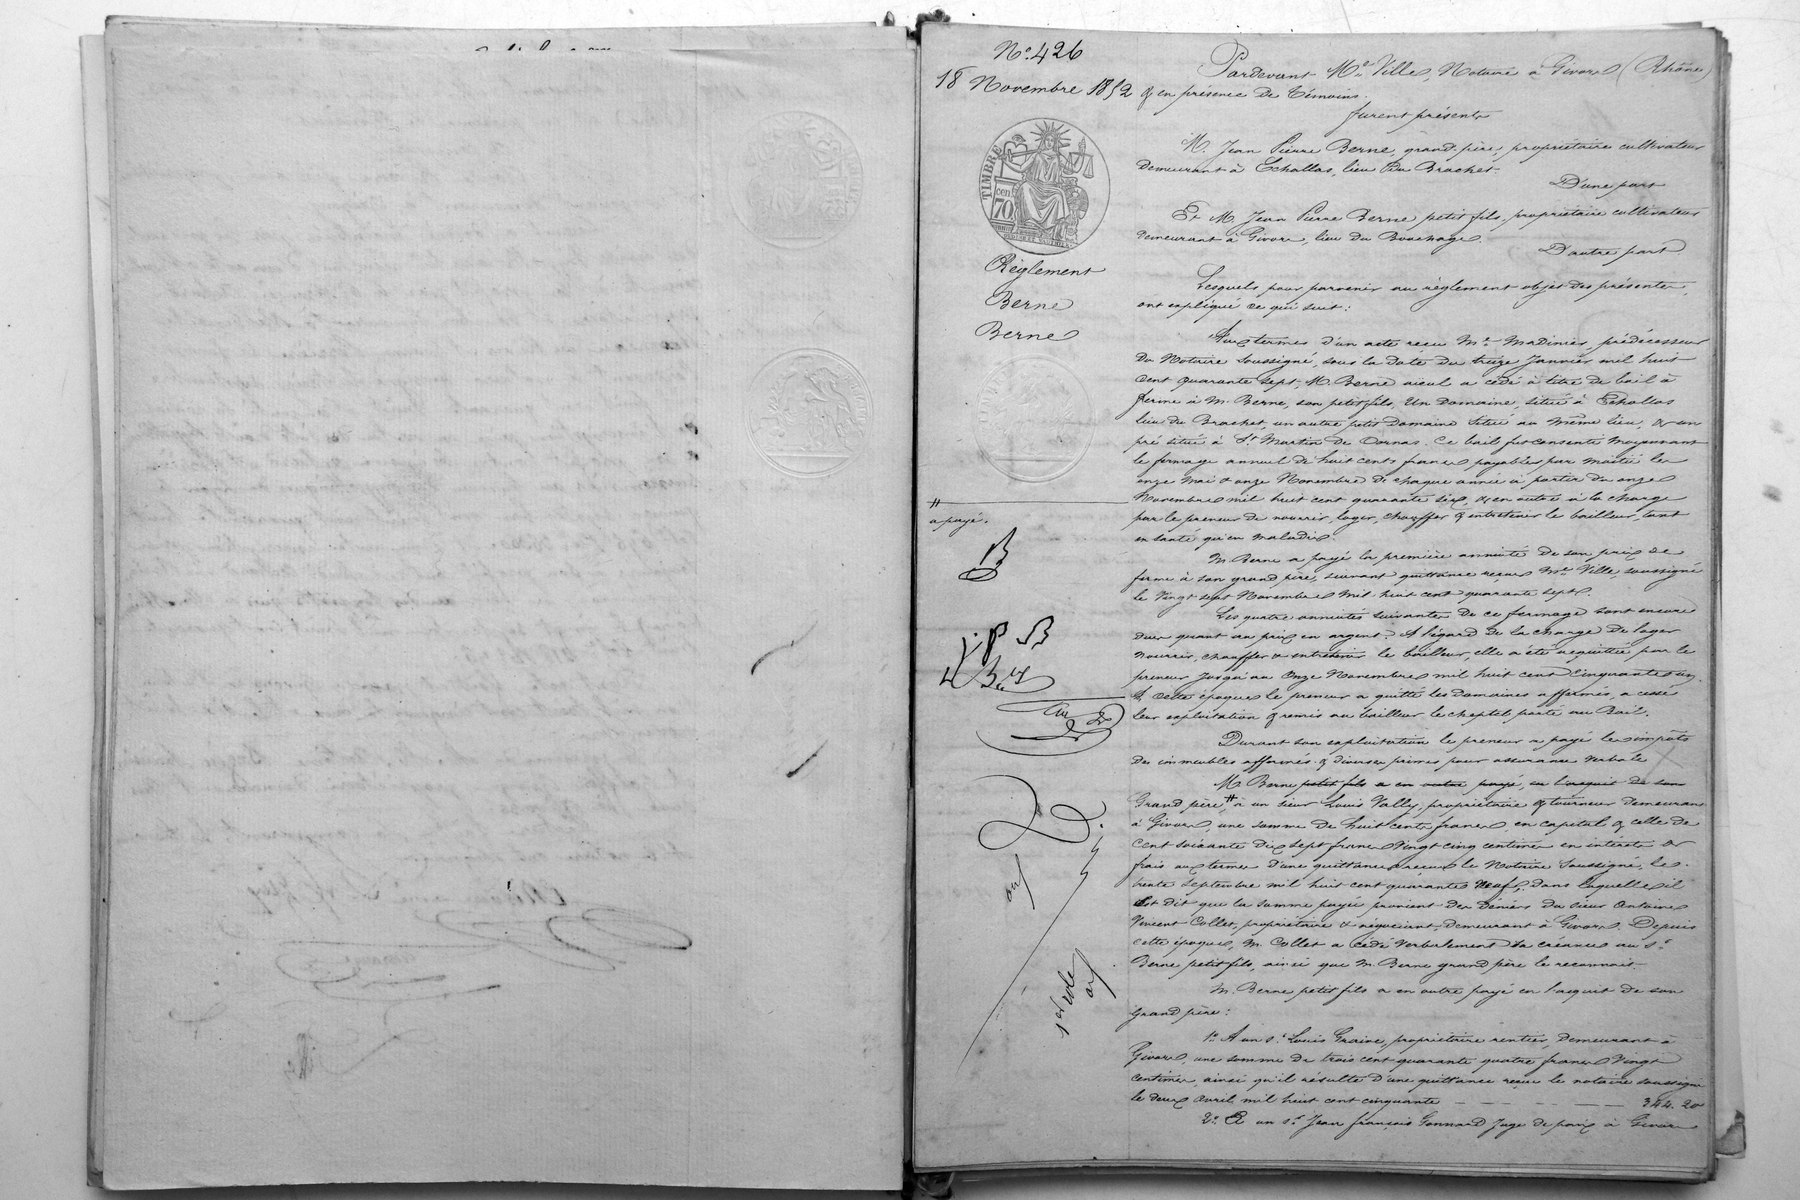 N.° 426
18 Novembre 1852
TIMBRE
70 cen
Règlement
Berne
Berne
Pardevant M.e Ville, Notaire à Givors (Rhône)
& en présence de témoins.
furent présents
M. Jean Pierre Berne, grand père, propriétaire cultivateur
demeurant à Echallas, lieu du Brachet
D'une part
Et M. Jean Pierre Berne petit fils, propriétaire cultivateur
demeurant à Givors, lieu du Bouchage.
D'autre part
Lesquels pour parvenir au règlement objet des présentes
ont expliqué ce qui suit :
Aux termes d'un acte reçu M.e Madinier, prédécesseur
du Notaire soussigné, sous la date du treize Janvier mil huit
cent quarante sept, M. Berne aieul a cédé à titre de bail à
ferme à M. Berne, son petit fils, Un Domaine, situé à Echallas
lieu du Brachet, un autre petit Domaine situé au même lieu, & un
pré situé à St Martin de Cornas. Ce bail fut consenti moyennant
le fermage annuel de huit cents francs payables par moitié les
onze Mai & onze Novembre de chaque année à partir du onze
Novembre mil huit cent quarante six, & en outre à la charge
par le preneur de nourrir, loger, chauffer & entretenir le bailleur, tant
en santé qu'en maladie.
M. Berne a payé la première annuité de son prix de
ferme à son grand père, suivant quittance reçue M.e Ville, soussigné
le Vingt sept Novembre mil huit cent quarante sept.
Les quatre annuités suivantes de ce fermage sont encore
dues quant au prix en argent. A l'égard de la charge de loger
nourrir, chauffer & entretenir le bailleur, elle a été acquittée par le
preneur jusqu'au Onze Novembre mil huit cent cinquante un.
A cette époque le preneur a quitté les Domaines affermés, a cessé
leur exploitation & remis au bailleur le cheptel porté au Bail.
Durant son exploitation le preneur a payé les impôts
des immeubles affermés & diverses primes pour assurance verbale
M. Berne petit fils a en outre payé, en l'acquit de son
Grand père # à un sieur Louis Vally, propriétaire & tourneur demeurant
à Givors, une somme de huit cents francs en capital & celle de
cent soixante dix sept francs Vingt cinq centimes en intérêts &
frais aux termes d'une quittance reçue le Notaire soussigné, le
trente septembre mil huit cent quarante neuf, dans laquelle il
est dit que la somme payée provient des Deniers du sieur Antoine
Vincent Collet, propriétaire & négociant, demeurant à Givors. Depuis
cette époque, M. Collet a cédé verbalement sa créance au s.r
Berne petit fils, ainsi que M. Berne grand père le reconnait.
M. Berne petit fils a en outre payé en l'acquit de son
grand père :
1.° A un s.r Louis Graine, propriétaire rentier, demeurant à
Givors, une somme de trois cent quarante quatre francs Vingt
centimes, ainsi qu'il résulte d'une quittance reçue le notaire soussigné
le deux Avril mil huit cent cinquante - - - - - 344. 20
2.° A un s.r Jean françois Gonnard Juge de paix à Givors
#
a payé.
1er rôle